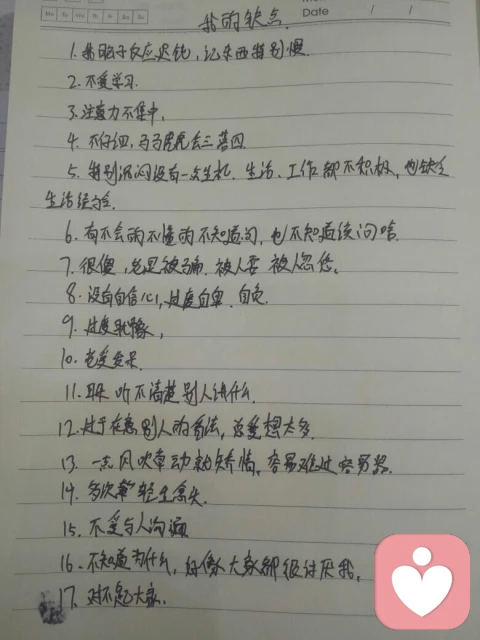 Mo Tu We Th Fr Sa Su
Date / /
我的缺点
1. 我脑子反应迟钝,记东西特别慢
2. 不爱学习.
3. 注意力不集中,
4. 不仔细,马马虎虎会三落四
5. 特别沉闷没有一次生机. 生活、工作都不积极,也缺乏
生活经验.
6. 有不会的不懂的不知道问,也不知道该问啥.
7. 很傻,总是被骗. 被人耍 被人忽悠。
8. 没有自信心,过度自卑. 自负
9. 过度犹豫,
10. 老爱发呆.
11. 耳朵 听不清楚别人讲什么.
12. 过于在意别人的看法,总爱想太多.
13. 一点风吹草动就矫情. 容易难过容易怒.
14. 多次有轻生念头.
15. 不爱与人沟通
16. 不知道为什么,好像大家都很讨厌我。
17. 对不起大家.